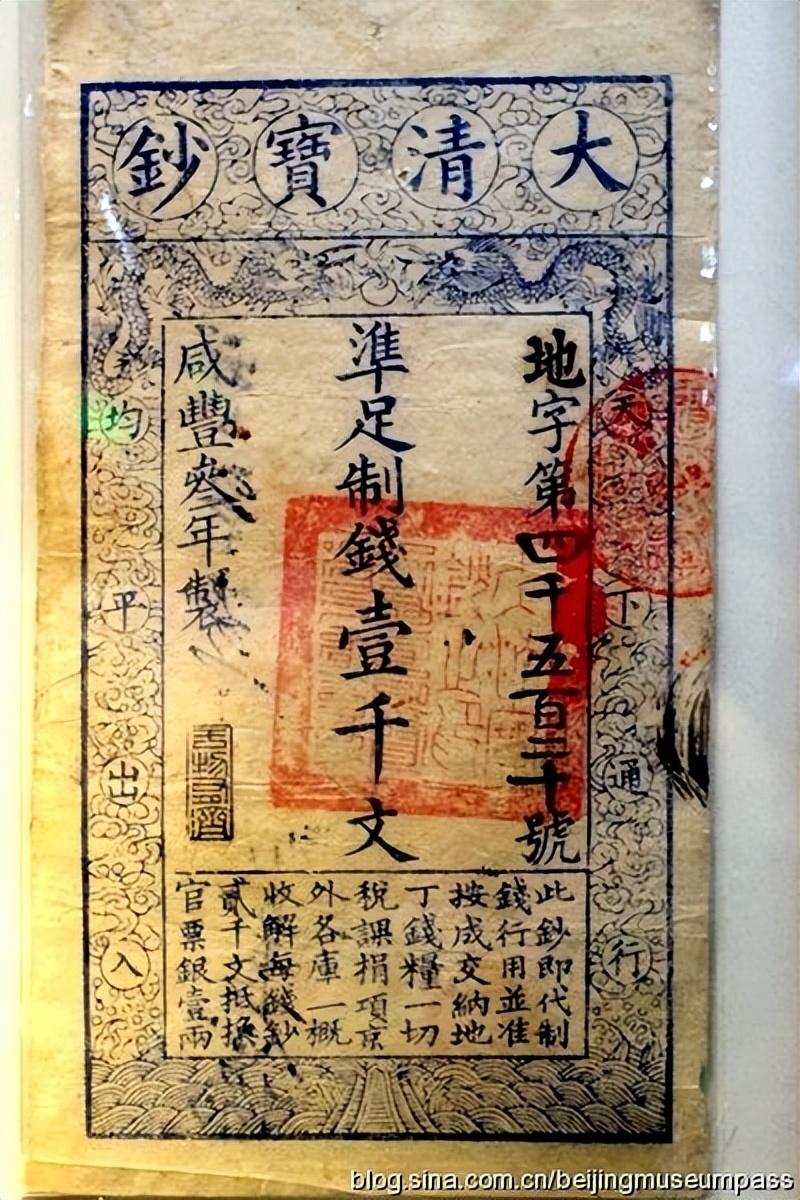 大清寶鈔
天下通行
地字第四千五百三十號
準足制錢壹千文
咸豐叄年製
均平出入
此鈔即代制
錢行用並准
按成交納地
丁錢糧一切
稅課捐項京
外各庫一概
收解每錢鈔
貳千文抵換
官票銀壹兩
blog.sina.com.cn/beijingmuseumpass